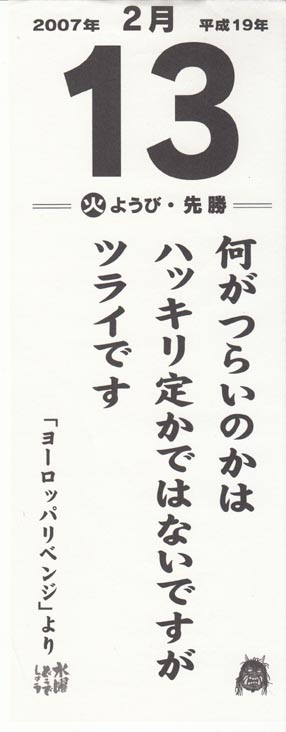 2007年 2月 平成19年
13
火 ようび・先勝
何がつらいのかは
ハッキリ定かではないですが
ツライです
「ヨーロッパリベンジ」より
水曜
どうで
しょう